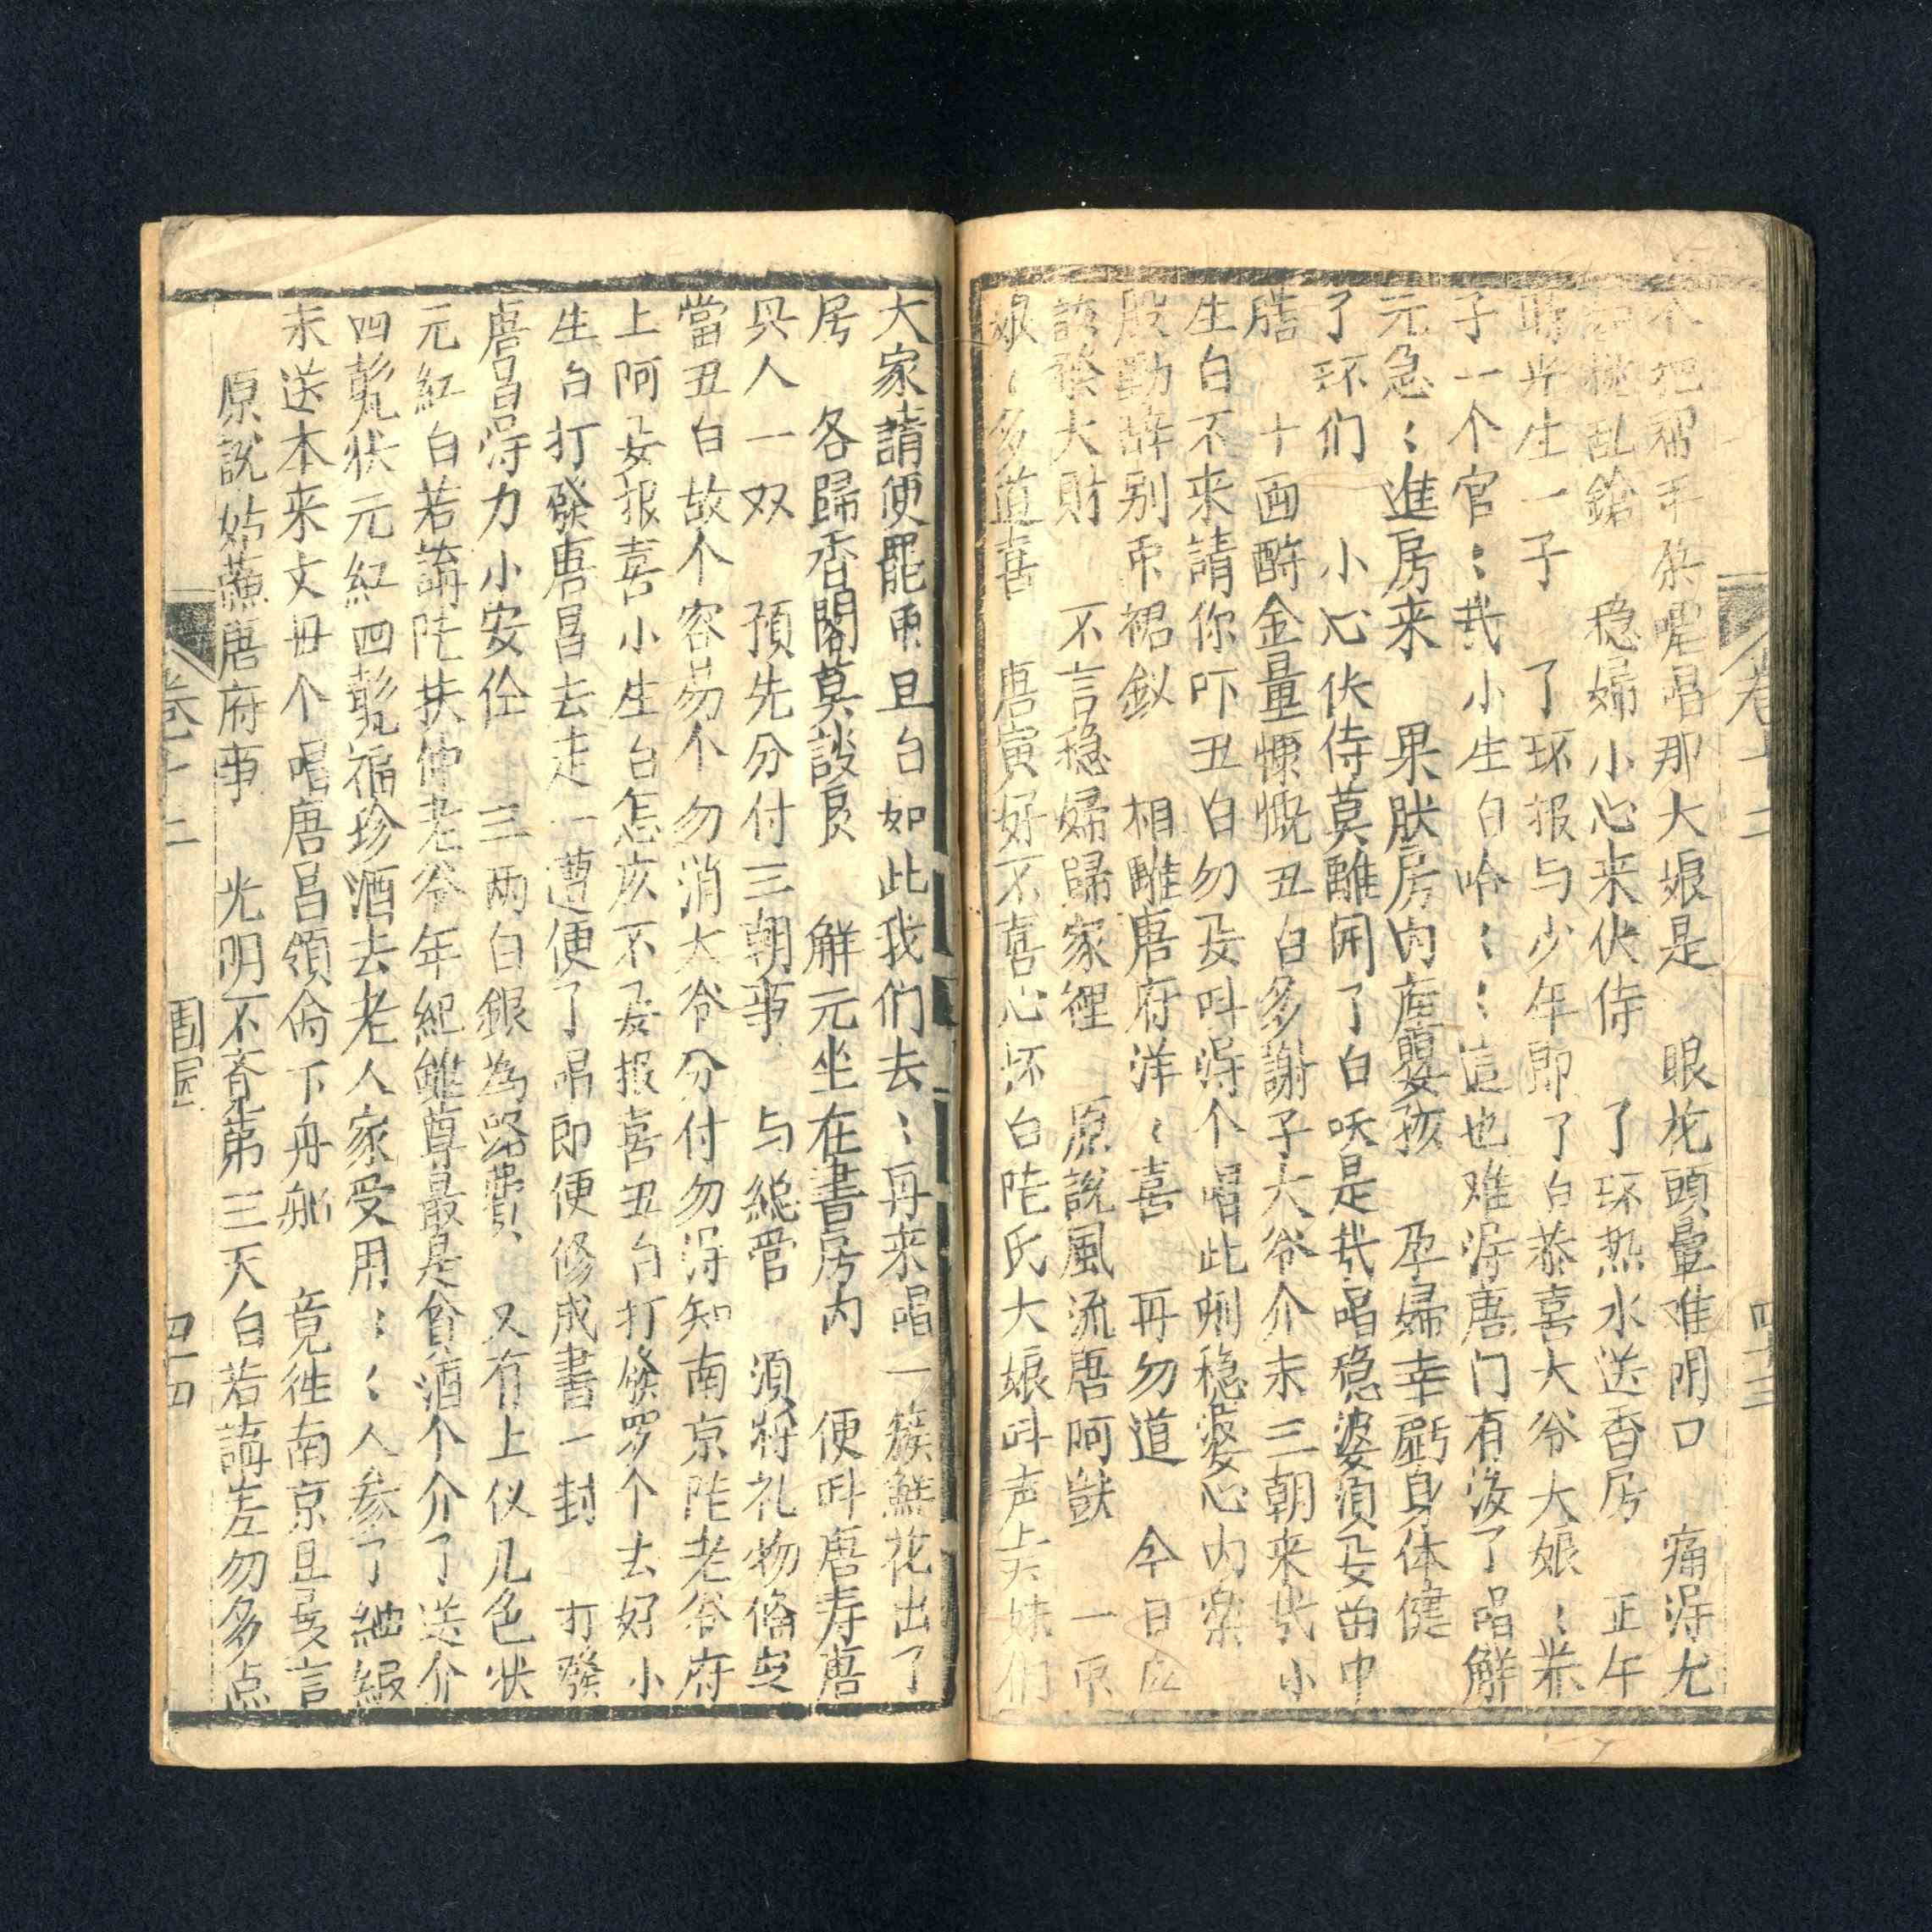 卷十二 四十三
不把帮手 唱那大娘是 眼花頭暈难開口 痛得尤
乱鎗 稳婦小心来伏侍 了环热水送香房 正午
時光生一子 了环报与少年郎 了白恭喜大爷大娘〻养
子一个官〻哉小生白哈〻〻這也难得唐门有後了唱解
元急〻進房来 果然房内産嬰孩 孕婦幸虧身体健
了环们 小心伏侍莫離開 了白呒是哉唱稳婆須要留中
膳 十两酧金量慷慨丑白多謝子大爷介末三朝来哉小
生白不来請你吓丑白勿要呌得个唱此刻稳婆心内樂
殷勤辞别布裙釵 相離唐府洋〻喜 再勿道 今日应
該發大財 不言稳婦歸家裡 原說風流唐阿獃 一
娘〻多道喜 唐寅好不喜心怀白陸氏大娘呌声上天妹们
大家請便罷重旦白如此我们去〻再来唱一簇鮮花出了
房 各歸香閣莫談良 解元坐在書房内 便呌唐寿唐
興人一双 預先分付三朝事 与総管 須将礼物俻安
當丑白故个容易个勿消大爷分付勿得知南京陸老爷府
上阿要报喜小生白怎亥不要报喜丑白打發罗个去好小
生白打發唐昌去走一遭便了唱即便修成書一封 打發
唐昌得力小安佺 三两白銀為路費 又有上仪几色状
元紅白若論陸扶仲老爷年紀雖尊最是貪酒个介了送介
四甏状元紅四甏福珍酒去老人家受用〻〻人参了紬緞
末送本来丈母个唱唐昌領命下舟船 竟徃南京且慢言
原說姑蘇唐府事 光明不覚第三天白若論差勿多点
卷十二 周屋 四十四